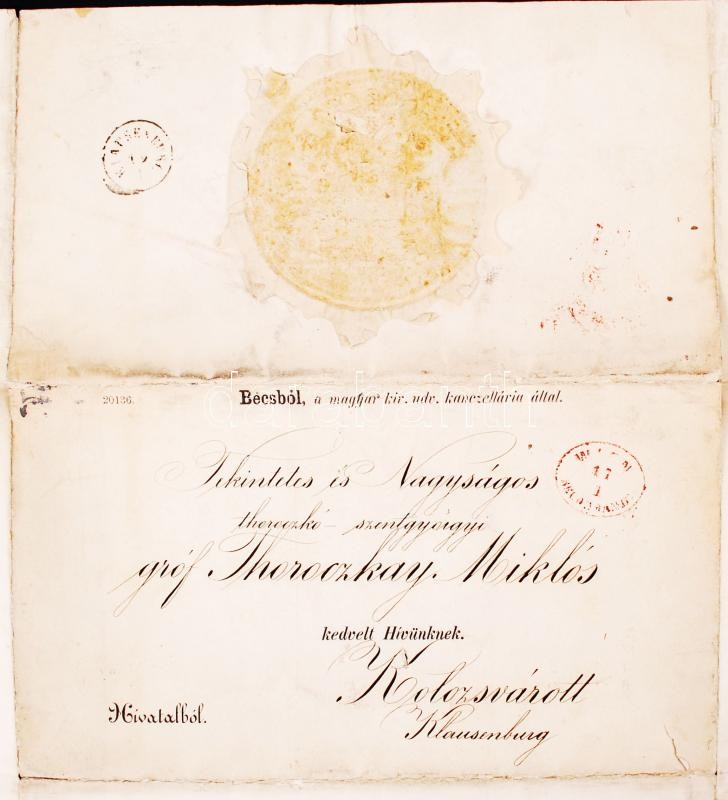 KLAUSENBURG
20136.
Bécsből, a magyar kir. udv. kanczellária által.
darabanth
Tekintetes és Nagyságos
thoroczkó-szentgyörgyi
17
1
gróf Thoroczkay Miklós
kedvelt Hívünknek.
Kolozsvárott
Klausenburg
Hivatalból.